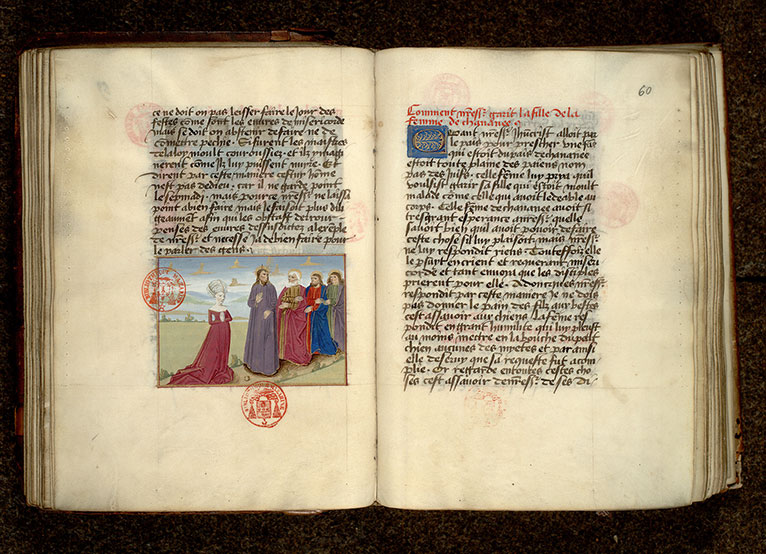 ce ne doit on pas leisser faire le Jour des
festes come sont les euures de misericorde
mais se doit on abstenir de faire ne de
cometre peche. Si furent les maistres
de la loy moult courroussies et
nerent come Ilz luy puissent nuyre. Et
dirent par ceste maniere cestui home
nest pas de dieu. car il ne garde point
le sepmadi. mais pource nressr ne laissa
point a bien faire mais le faisoit plus dili
afin qui les obstast de trou
penses des euures dessusdictes a lexeple
de nressr et ne cesse Ja de bien faire pour
le parler des gens.
60
Comment nressr garit la fille de la
femme de chananee
Deuant nressr Ihucrist alloit par
le pais pour prescher une
qui estoit du pais de chananee
estoit toute plaine des paiens nom
pas des Juifs. celle feme luy pria quil
voulsist garir sa fille qui estoit moult
malade come celle qui auoit le deable au
corps. Celle feme de chananee auoit si
tresgrant esperance a nressr quelle
sauoit bien quil auoit pouoir de faire
ceste chose sil luy plaisoit mais nressr
ne luy respondit riens. Toutesfois elle
le suyt en crient et requerant miseri
corde et tant enuoya que les disciples
prierent pour elle. Adoncques nressr
respondit par ceste maniere Je ne dois
pas donner le pain des filz aux bestes
cest assauoir aux chiens. La feme res
pondit en grant humilite quil luy pleust
au moins mettre en la bouche du petit
chien aucunes des myetes et par ainsi
elle desseruy que sa requeste fut acom
plie. Or regarde en toutes cestes cho
ses cest assauoir de nressr de ses di